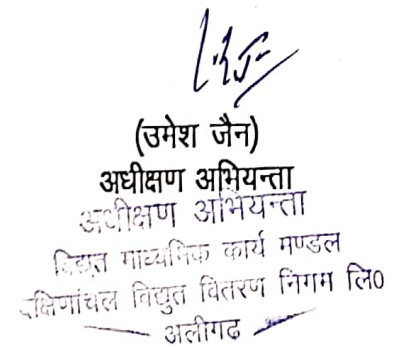 (उमेश जैन)
अधीक्षण अभियन्ता
अधीक्षण अभियन्ता
विद्युत माध्यमिक कार्य मण्डल
दक्षिणांचल विद्युत वितरण निगम लि0
अलीगढ